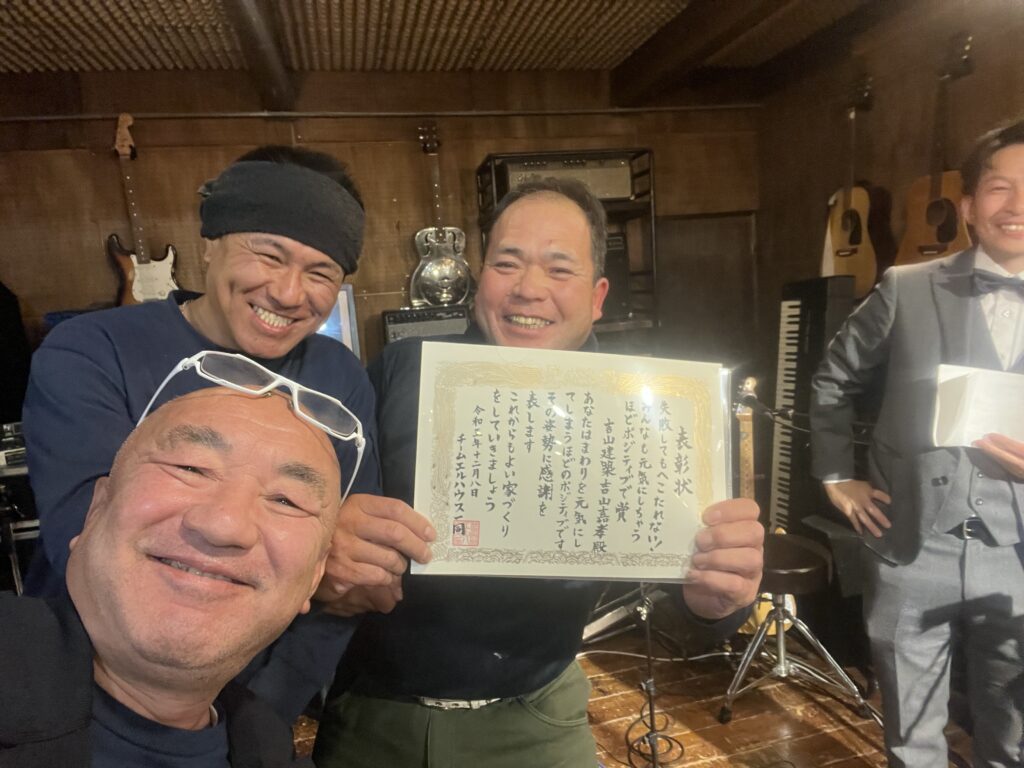 表彰状
失敗してもへこたれない!
みんなしも元気にしちゃう
ほどポジティブで賞
吉山建築 吉山嘉孝殿
あなたはまわりを元気にし
てしまうほどのポジティブです
その姿勢に感謝を
表します
これからもよい家づくり
をしていきましょう
令和二年十二月八日
チムエルハウス一同